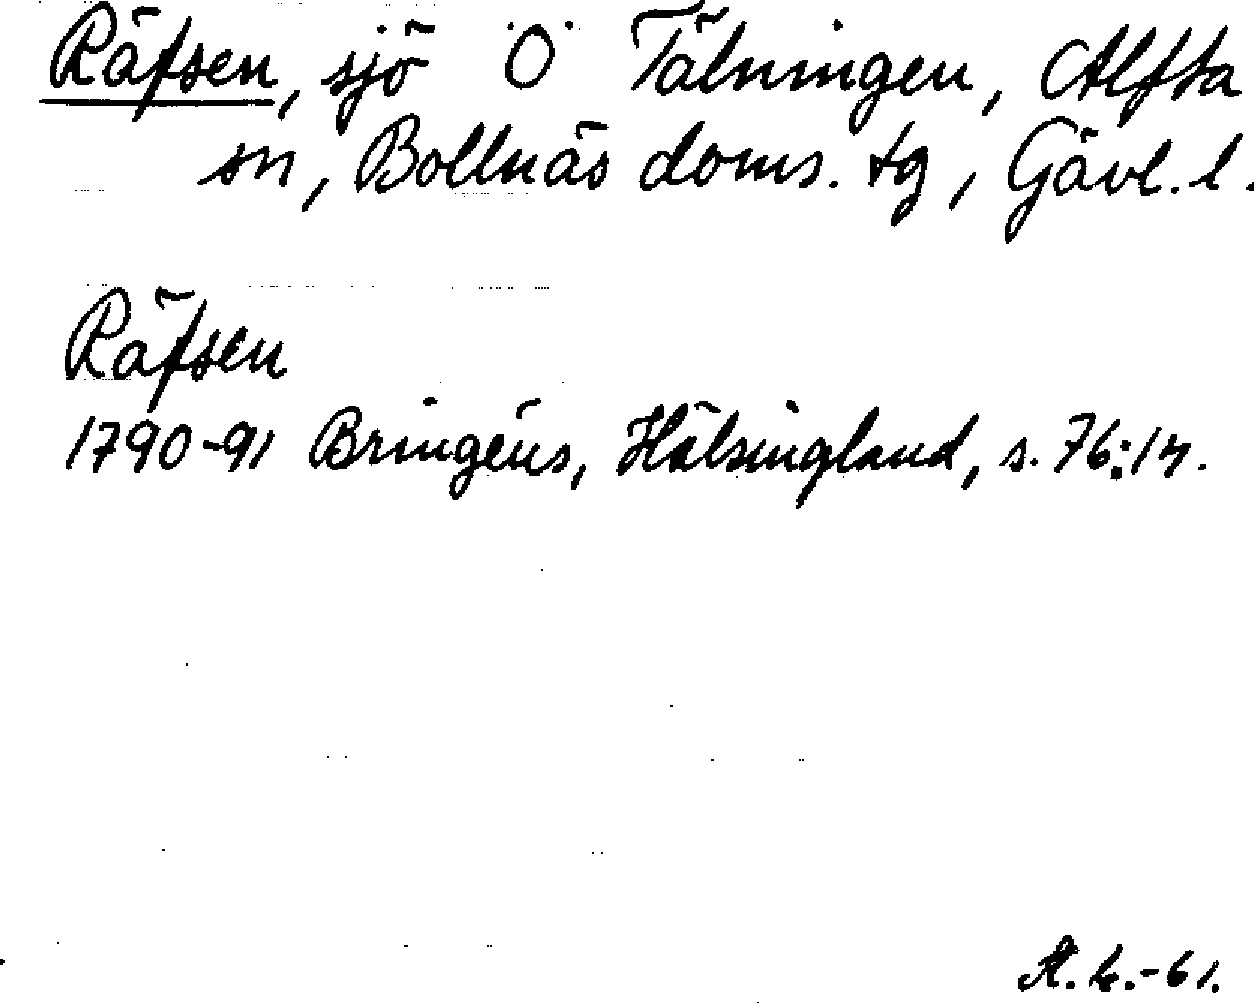 Räfsen, sjö Ö Tälningen, Alfta
sn, Bollnäs doms. tg, Gävl. l.
Räfsen
1790-91 Bringéus, Hälsingland, s. 76:14.
-61.